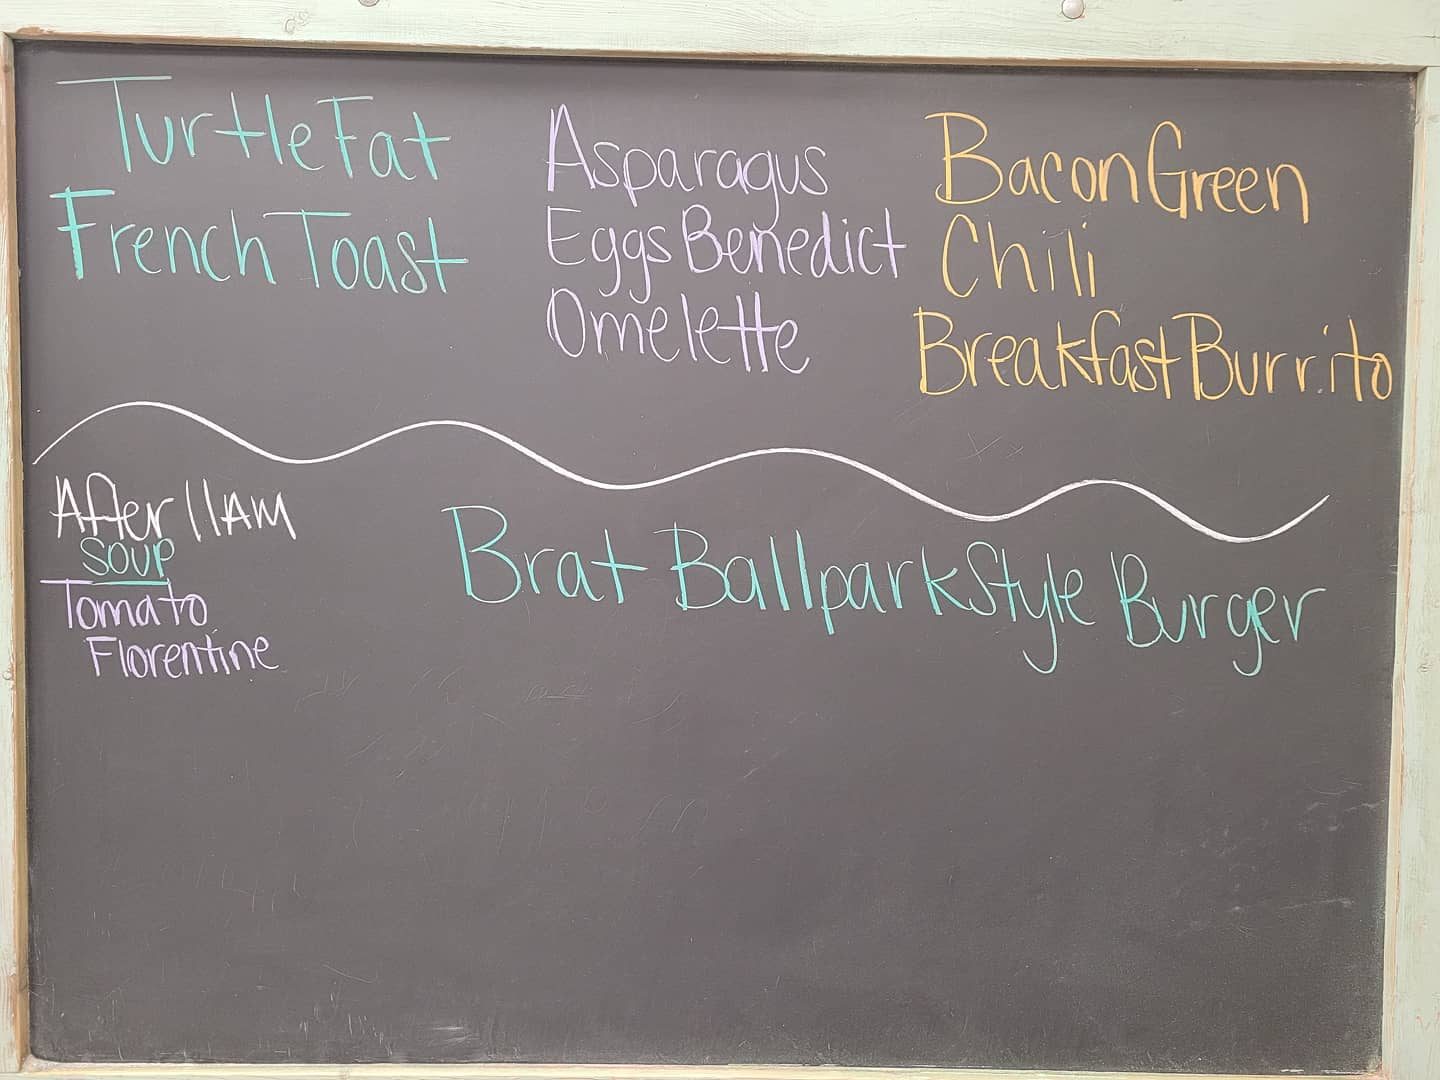 Turtle Fat
French Toast
Asparagus
Eggs Benedict
Omelette
Bacon Green
Chili
Breakfast Burrito
After 11AM
Soup
Tomato
Florentine
Brat Ballpark Style Burger